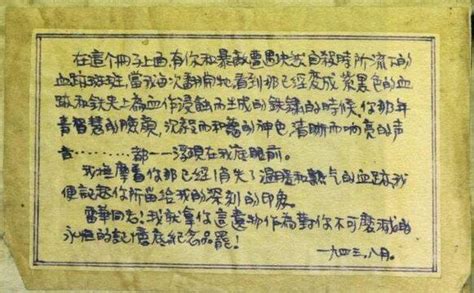 在這個冊子上面有你和暴敵遭遇失敗自殺時所流下的
血跡斑斑,當我每次翻開牠,看到那已經變成紫黑色的血
跡和鉄夾上為血作浸蝕而生成的鉄銹的時候,你那年
青智慧的臉龐,沉毅而和靄的神色,清晰而响亮的声
音………都一一浮現在我底眼前。
我撫摩着你那已經消失了溫暖和熱气的血跡,我
便記起你所留給我的深刻的印象。
雷華同志!我就拿你這遺物作為對你不可磨滅的
永恒的記憶底紀念品罷!
一九四三,八月。